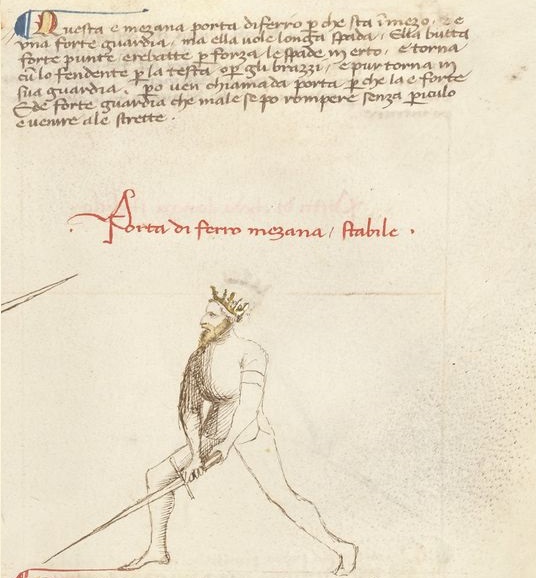 Questa e mezana porta di ferro p che sta in mezo, e e
una forte guardia, ma ella vole longa spada, Ella butta
forte punte e rebatte p forza le spade in erto, e torna
cū lo fendente p la testa o p gli brazzi, e pur torna in
sua guardia. po ven chiamada porta p che la e forte
E de forte guardia che male se po rompere senza piculo
e venire ale strette.
Porta di ferro mezana, stabile.